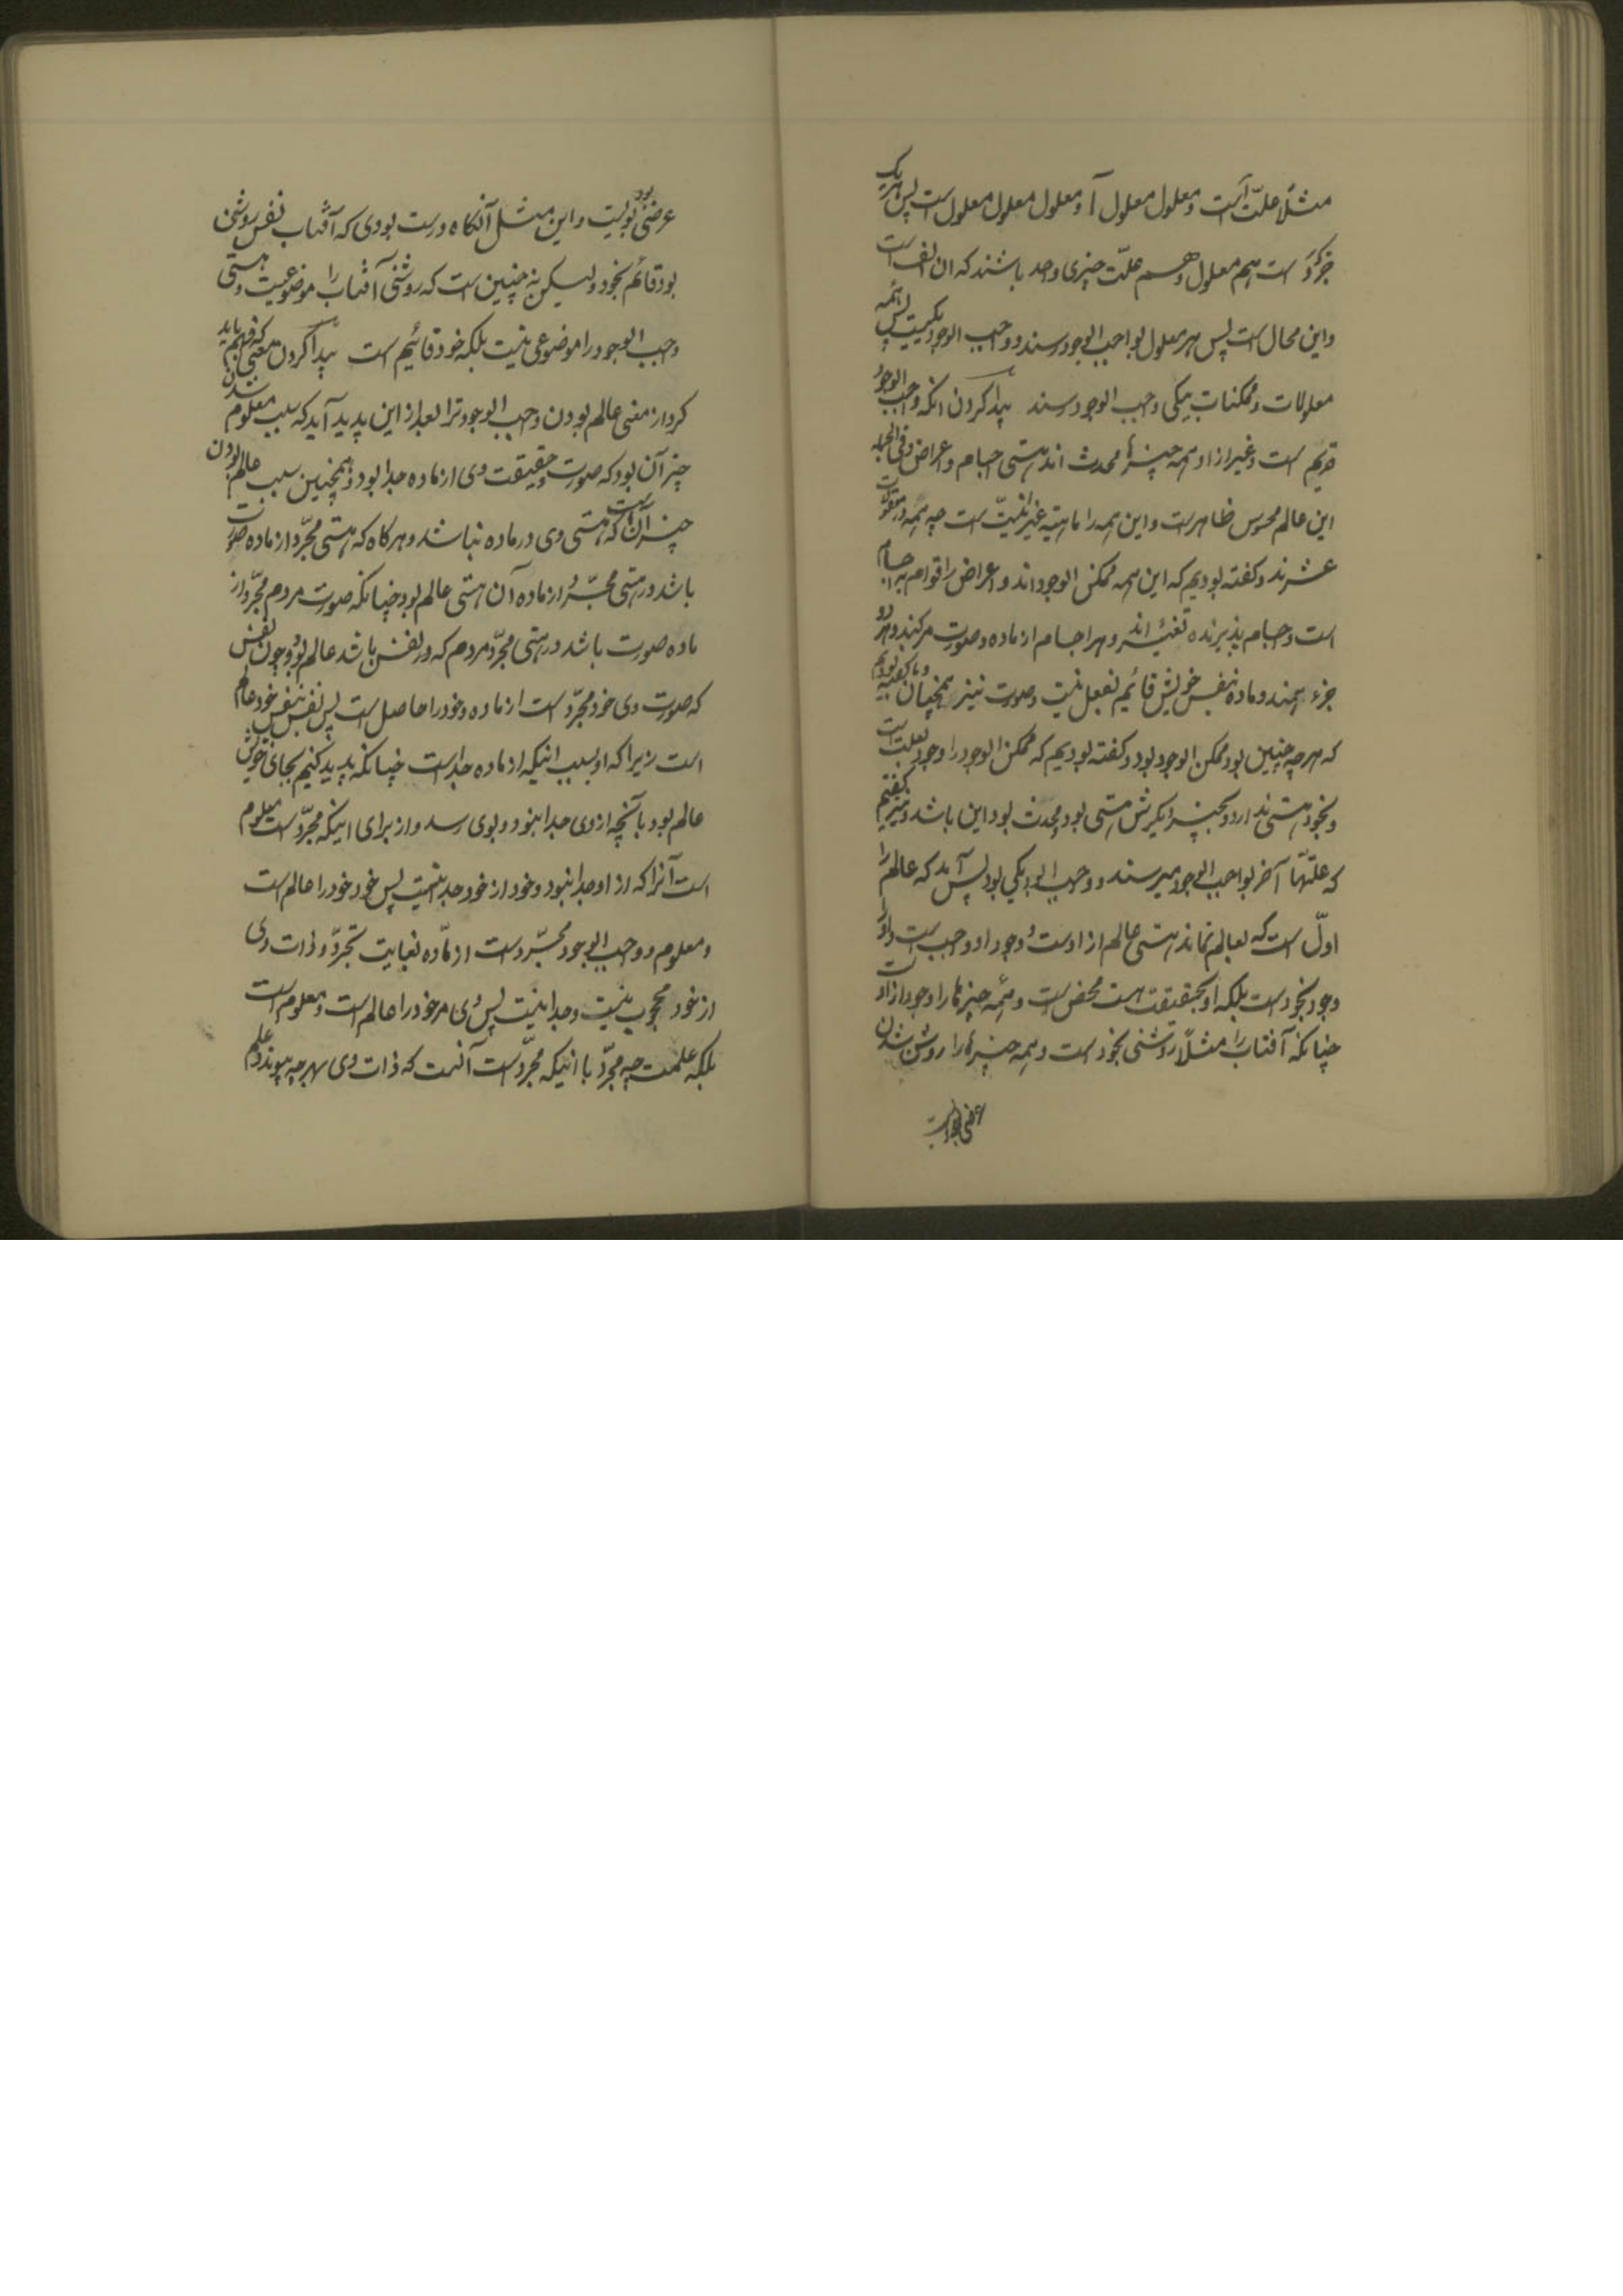 مثلاً علّت آ است و معلول معلول آ و معلول معلول معلول است پس هر یک
جزو است هم معلول و هم علّت چیزی واحد باشند که ان الف است
واین محال است پس هر معلول بواجب الوجود رسند و واجب الوجود یکیست پس همه
معلولات و ممکنات بیکی واجب الوجود رسند پیدا کردن انکه واجب الوجود
قدیم است و غیر از او همه چیزها محدث اند هستی اجسام و اعراض و فی الجمله
این عالم محسوس ظاهر است و این همه را ماهیّته غیر انیّت است چه همه در مقولات
عشرند و کفته بودیم که این همه ممکن الوجود اند و اعراض را قوام به اجسام
است و اجسام پذیرنده تغیّر اند و هر اجسام از ماده و صورت مرکبند و هر دو
جزء همند و ماده بنفس خویش قائیم بفعل نیست و صورت نیز همچنان و ما کفته بودیم
که هر چه چنین بود ممکن الوجود بود و کفته بودیم که ممکن الوجود را وجود بعلت است
و بخود هستی ندارد و بچیز دیکرش هستی بود و محدث بود این باشد و نیز کفتیم
که علّتها آخر بواجب الوجود میرسند و واجب الوجود یکی بود پس آمد که عالم را
اولّ است که بعالم نماند هستی عالم از اوست و وجود او واجب است و او را
وجود بخود است بلکه او بحقیقت هست محض است و همه چیزها را وجود از اوست
چنانکه آفتاب را مثلاً روشنی بخود است و همه چیزها را روشن شدن
عرضی بود است
عرضی بود بویست و این مثل آنکاه درست بودی که آفتاب نفس روشنی
بود قائم بخود ولیکن نه چنین است که روشنی آفتاب را موضوعیست و هستی
واجب الوجود را موضوعی نیست بلکه خود قائیم است پیدا کردن معنی که فهم باید
کرد از معنی عالم بودن واجب الوجود ترا بعد از این پدید آید که سبب معلوم شدن
چیز آن بود که صورت و حقیقت وی از ماده جدا بود و همچنین سبب عالم بودن
چیز آن است که هستی وی در ماده نباشد و هر کاه که هستی مجّرد از ماده صورت
باشد در هستی مجّرد از ماده آن هستی عالم بود چنانکه صورت مردم مجّرد از
ماده صورت باشد در هستی مجّرد مردم که در نفس باشد عالم بود و چون نفس
که صورت وی خود مجّرد است از ماده و خود را حاصل است پس نفس بنفس خود عالم
است زیرا که او بسبب اینکه از ماده جداست چنانکه پدید کنیم بجای خویش
عالم بود بآنچه از وی جدا نبود و بوی رسد و از برای اینکه مجّرد است معلوم
است آنرا که از او جدا نبود و خود از خود جدا نیست پس خود خود را عالم است
و معلوم و واجب الوجود مجّرد است از مّاده بغایت تجّرد و ذات وی
از خود محجوب نیست و جدا نیست پس وی مر خود را عالم است و معلوم است
بلکه علمست چه مجّرد با اینکه مجّرد است آنست که ذات وی بهر چه پیوندد علم